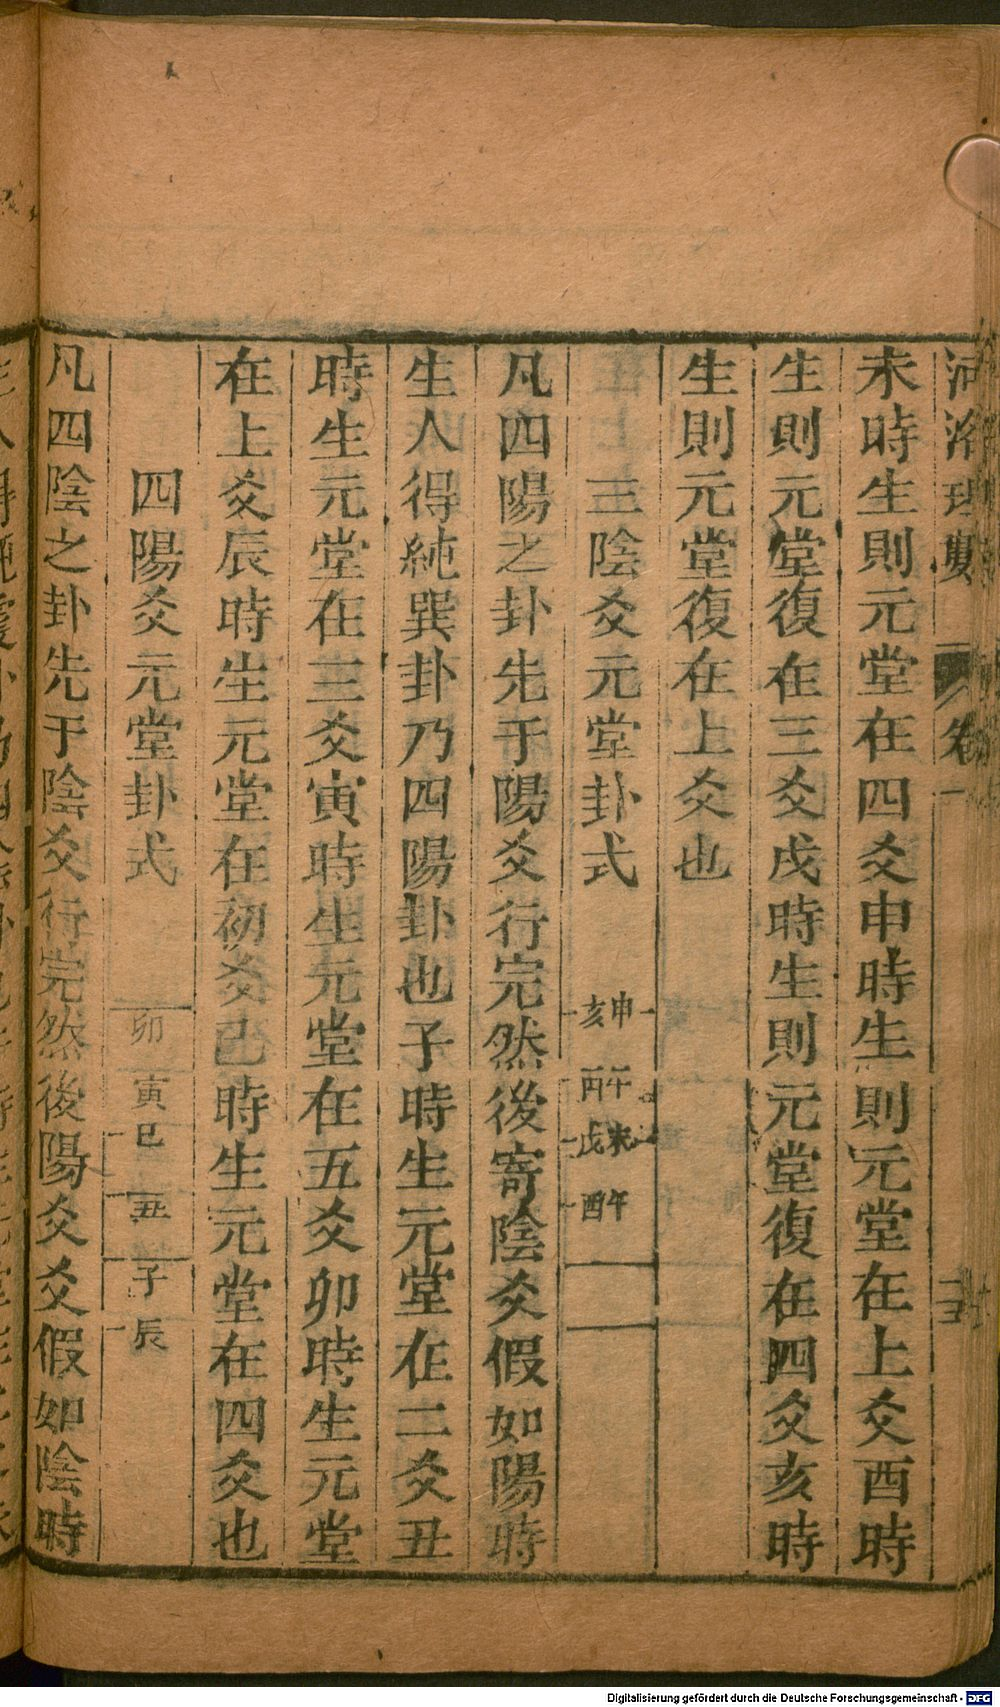 河洛理數 卷一
未時生則元堂在四爻申時生則元堂在上爻酉時
生則元堂復在三爻戌時生則元堂復在四爻亥時
生則元堂復在上爻也
三陰爻元堂卦式
申 午 未 午
亥 丙 戊 酉
凡四陽之卦先于陽爻行完然後寄陰爻假如陽時
生人得純巽卦乃四陽卦也子時生元堂在二爻丑
時生元堂在三爻寅時生元堂在五爻卯時生元堂
在上爻辰時生元堂在初爻己時生元堂在四爻也
四陽爻元堂卦式
卯 寅 巳 丑 子 辰
凡四陰之卦先于陰爻行完然後陽爻爻假如陰時
Digitalisierung gefördert durch die Deutsche Forschungsgemeinschaft - DFG